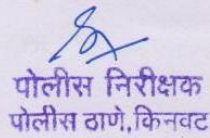 पोलीस निरीक्षक
पोलीस ठाणे,किनवट